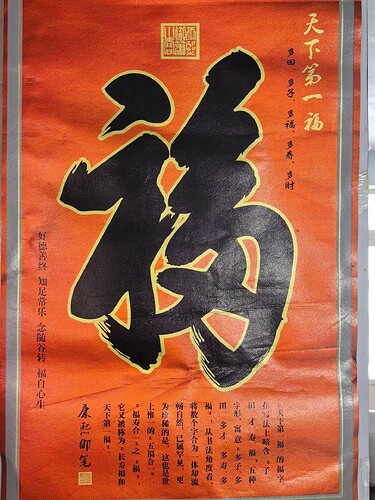 天下第一福
多田、多子、多福、多寿、多财
福
"天下第一福"的福字
在写法上暗含"子、
田、才、寿、福"五种
字形,寓意"多子、多
田、多才、多寿、多
福"。从书法角度看,
将数个字合为一体却流
畅自然,已属罕见,更
为珍稀的是,这也是世
上惟一的"五福合一"、
"福寿合一"之"福",
它又被称为"长寿福和
天下第一福"。
康熙御笔
好德善终 知足常乐 念随谷转 福自心生